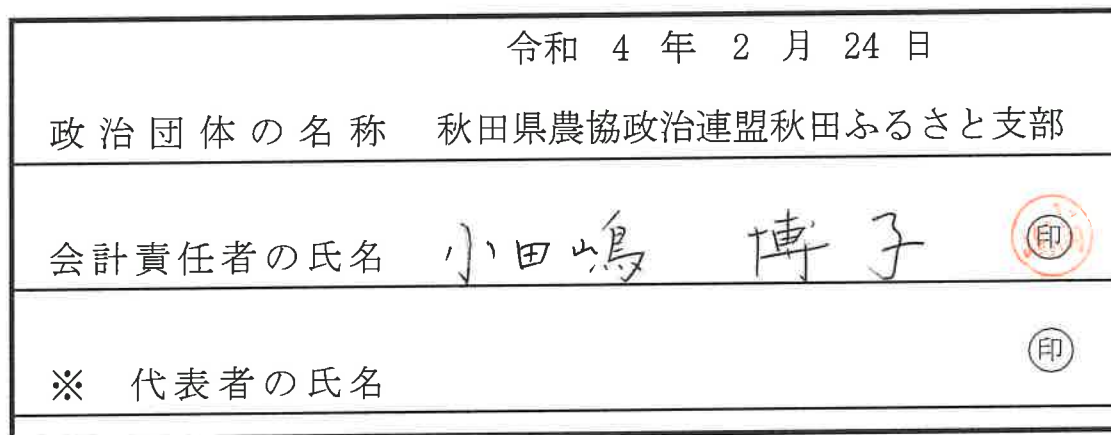 令和 4 年 2 月 24 日
政治団体の名称 秋田県農協政治連盟秋田ふるさと支部
会計責任者の氏名 小田嶋 博子 印
印
※ 代表者の氏名